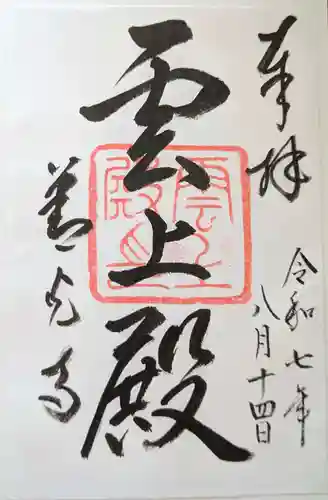 奉拝
令和七年
八月十四日
雲上殿
善光寺
雲上
殿印